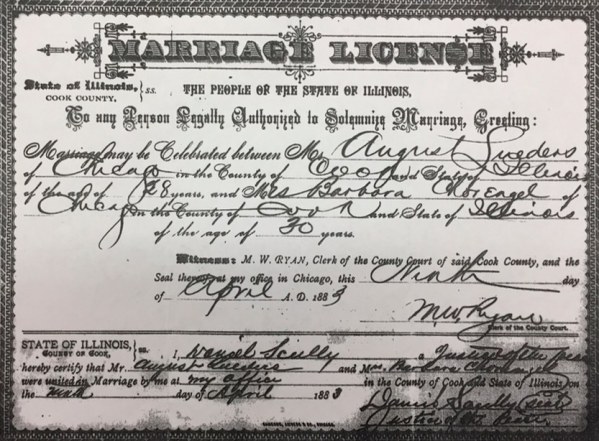 MARRIAGE LICENSE
State of Illinois, ss. THE PEOPLE OF THE STATE OF ILLINOIS,
COOK COUNTY,
To any Person Legally Authorized to Solemnize Marriage, Greeting:
Marriage may be Celebrated between Mr August Lueders
of Chicago in the County of Cook and State of Illinois
of the age of 28 years, and Mrs Barbara Chorengel of
Chicago in the County of Cook and State of Illinois
of the age of 30 years.
Witness: M. W. RYAN, Clerk of the County Court of said Cook County, and the
Seal thereof at my office in Chicago, this Ninth day
of April A. D. 1883
M.W. Ryan
Clerk of the County Court.
STATE OF ILLINOIS, ss. I, Daniel Scully a Justice of the Peace
COUNTY OF COOK,
hereby certify that Mr. August Lueders and Mrs Barbara Chorengel
were united in Marriage by me at my office in the County of Cook and State of Illinois, on
the ninth day of April 1883
Daniel Scully
Justice of the Peace